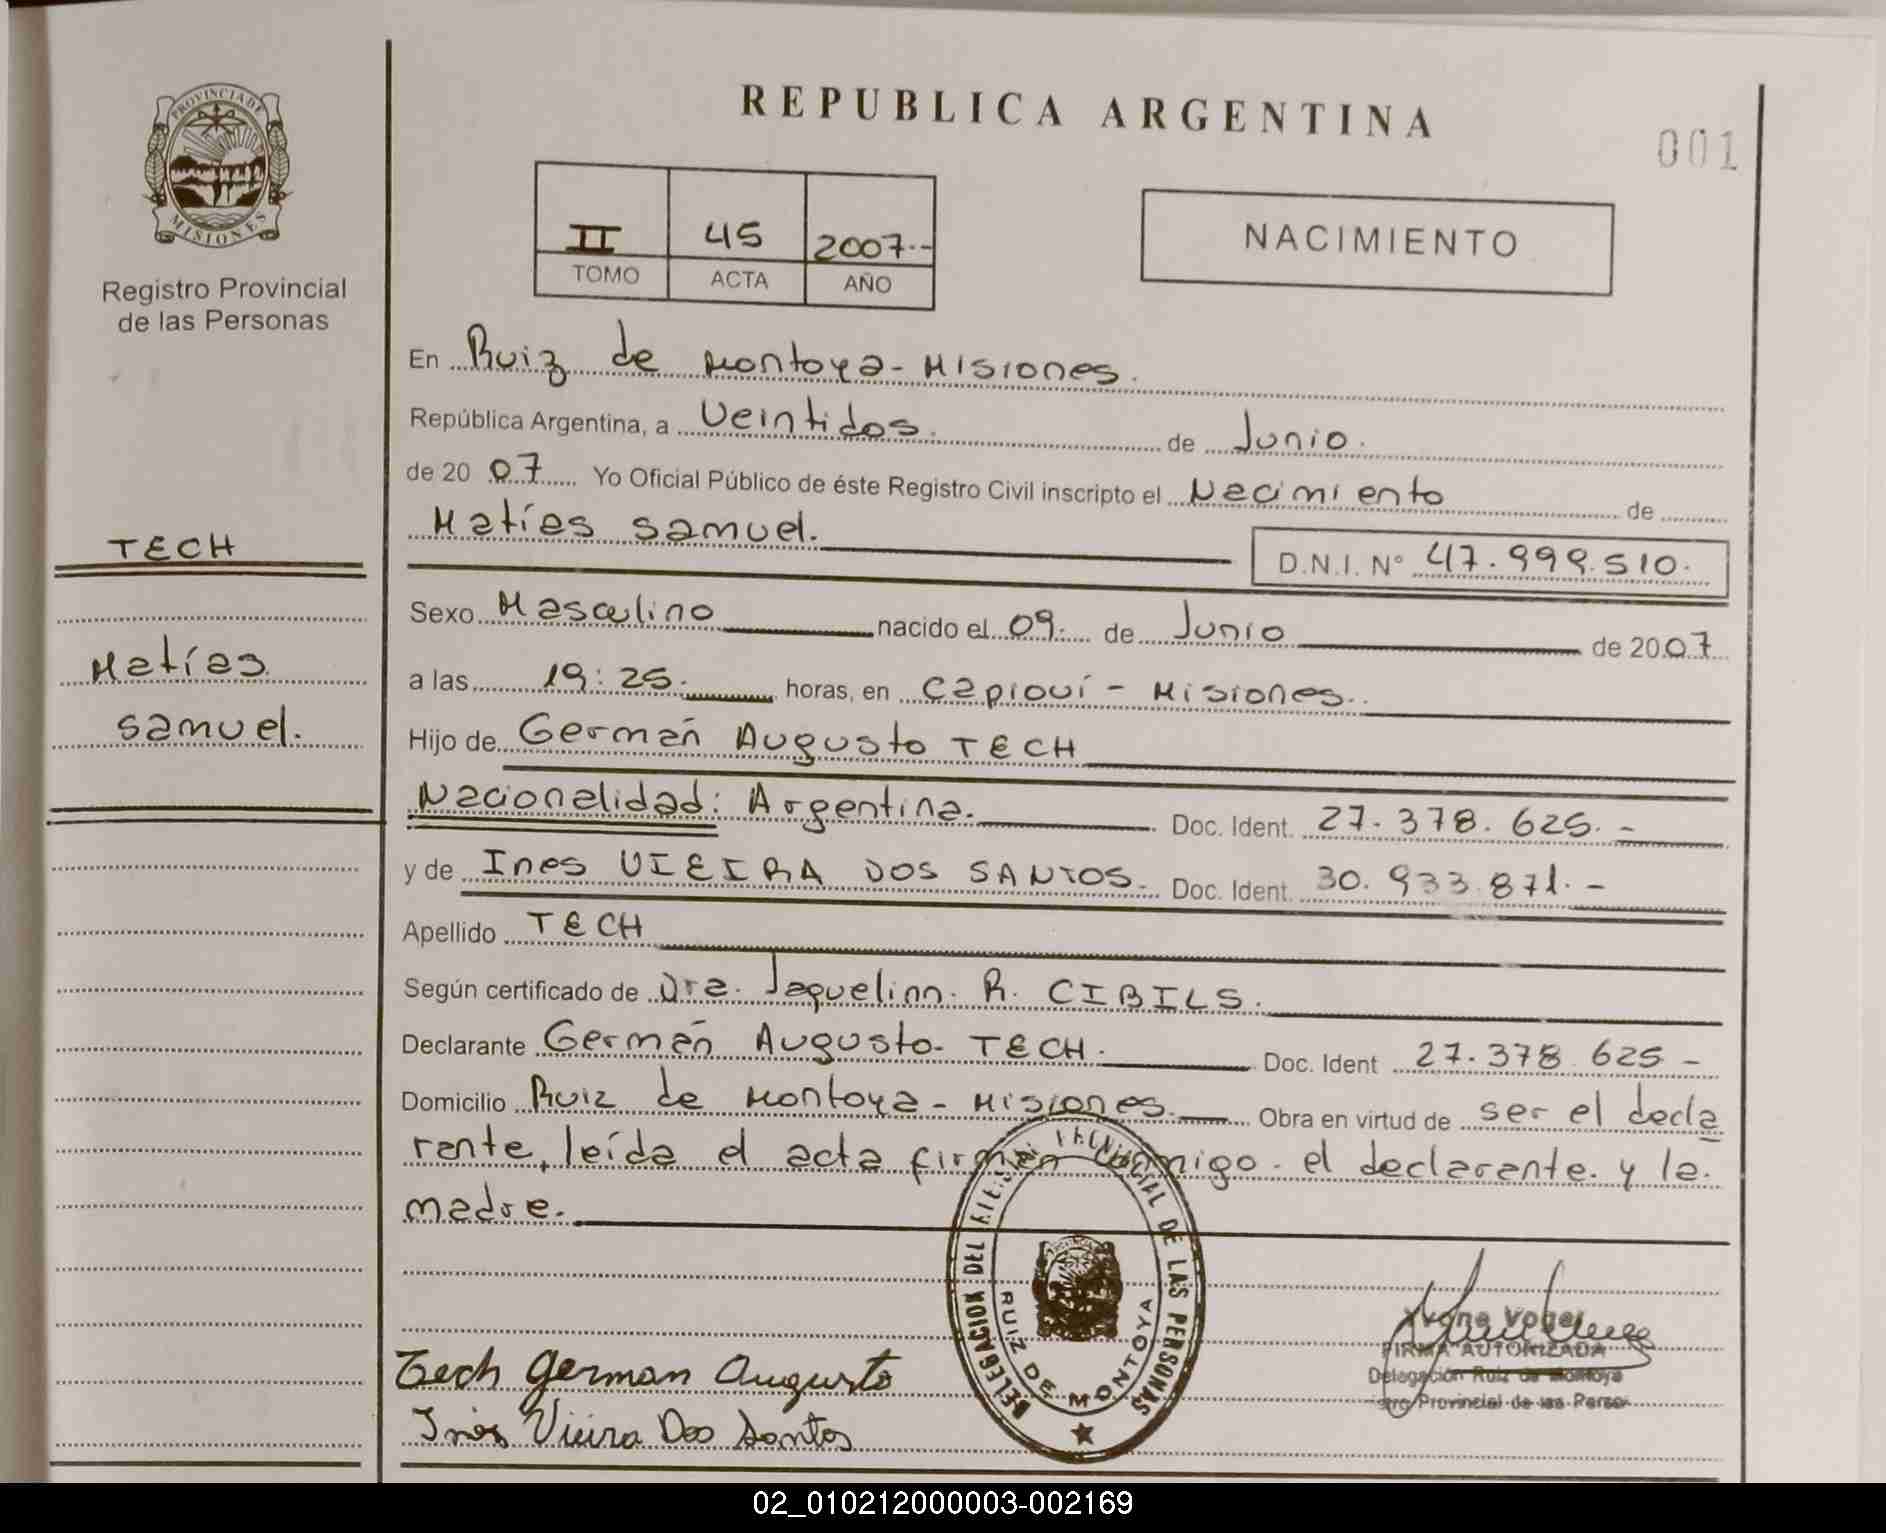 REPUBLICA ARGENTINA
001
PROVINCIA DE
MISIONES
Registro Provincial
de las Personas
II 45 2007.-
TOMO ACTA AÑO
NACIMIENTO
En Ruiz de Montoya - Misiones.
República Argentina, a Veintidos. de Junio.
de 20 07 Yo Oficial Público de éste Registro Civil inscripto el Nacimiento de
Matías Samuel.
D.N.I. Nº 47.999.510.
TECH
Matías
Samuel.
Sexo Masculino nacido el 09. de Junio de 2007
a las 19:25. horas, en Capioví - Misiones.
Hijo de Germán Augusto TECH
Nacionalidad: Argentina. Doc. Ident. 27.378.625.-
y de Ines VIEIRA DOS SANTOS. Doc. Ident. 30.933.871.-
Apellido TECH
Según certificado de Dra. Jaquelinn. R. CIBILS.
Declarante Germán Augusto. TECH. Doc. Ident 27.378.625-
Domicilio Ruiz de Montoya - Misiones. Obra en virtud de ser el decla
rante, leída el acta firman conmigo. el declarante. y la.
madre.
DELEGACION DEL PROVINCIAL DE LAS PERSONAS
RUIZ DE MONTOYA
Yvone Vogel
FIRMA AUTORIZADA
Delegación Ruiz de Montoya
Provincial de las Person
Tech German Augusto
Inés Vieira Dos Santos
02_010212000003-002169